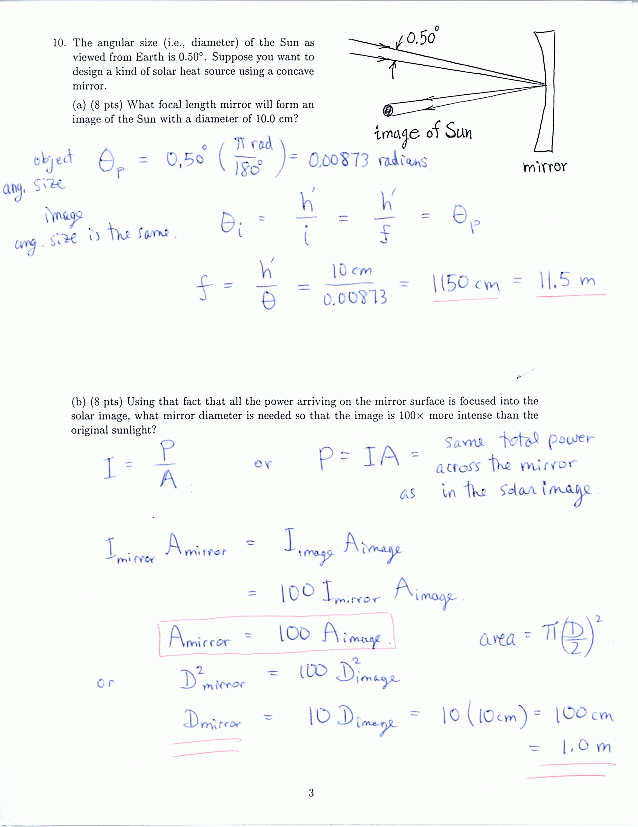 10. The angular size (i.e., diameter) of the Sun as
viewed from Earth is 0.50°. Suppose you want to
design a kind of solar heat source using a concave
mirror.
(a) (8 pts) What focal length mirror will form an
image of the Sun with a diameter of 10.0 cm?
0.50°
image of Sun
mirror
object ang. size θp = 0.50° (π rad / 180°) = 0.00873 radians
image ang. size is the same. θi = h'/i = h'/f = θp
f = h'/θ = 10 cm / 0.00873 = 1150 cm = 11.5 m
(b) (8 pts) Using that fact that all the power arriving on the mirror surface is focused into the
solar image, what mirror diameter is needed so that the image is 100× more intense than the
original sunlight?
I = P/A or P = IA = same total power
across the mirror
as in the solar image.
I mirror A mirror = I image A image
= 100 I mirror A image.
A mirror = 100 A image. area = π(D/2)²
or D² mirror = 100 D² image
D mirror = 10 D image = 10 (10 cm) = 100 cm
= 1.0 m
3